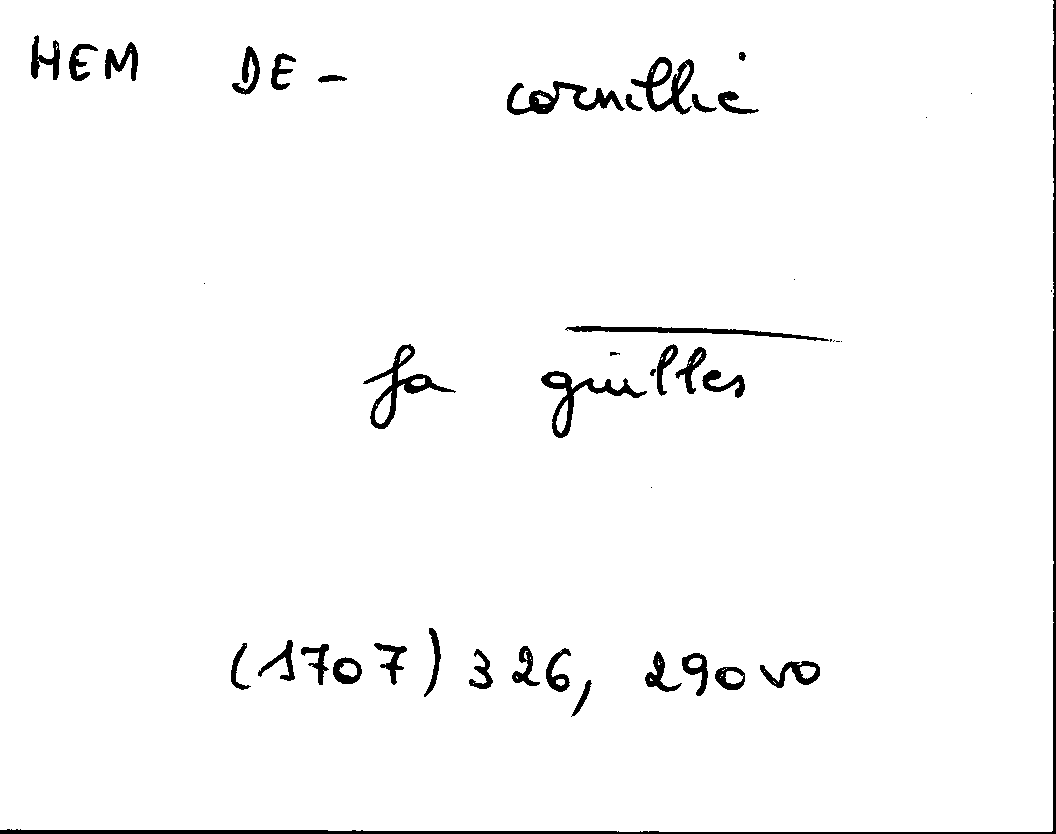 HEM DE- cornillie
fa guilles
(1707) 326, 290vo